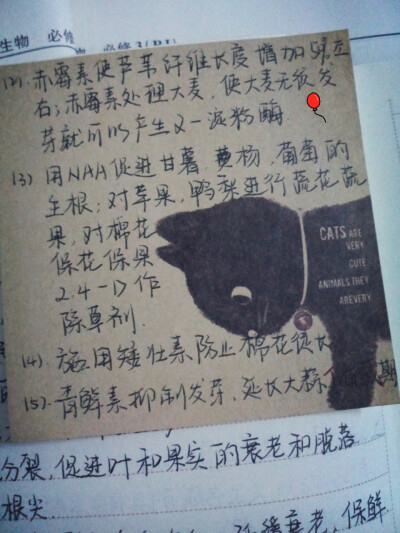 生物 必修
必修3(RJ)
(2). 赤霉素使芦苇纤维长度增加50%左
右;赤霉素处理大麦,使大麦无须发
芽就可以产生α-淀粉酶.
(3) 用NAA促进甘薯、黄杨、葡萄的
生根;对苹果、鸭梨进行疏花疏
果,对棉花
保花保果
2.4-D作
除草剂.
CATS ARE
VERY
CUTE
ANIMALS.THEY
AREVERY
(4). 施用矮壮素防止棉花徒长
(5). 青鲜素抑制发芽,延长大蒜
期
分裂,促进叶和果实的衰老和脱落
根尖
延缓衰老,保鲜